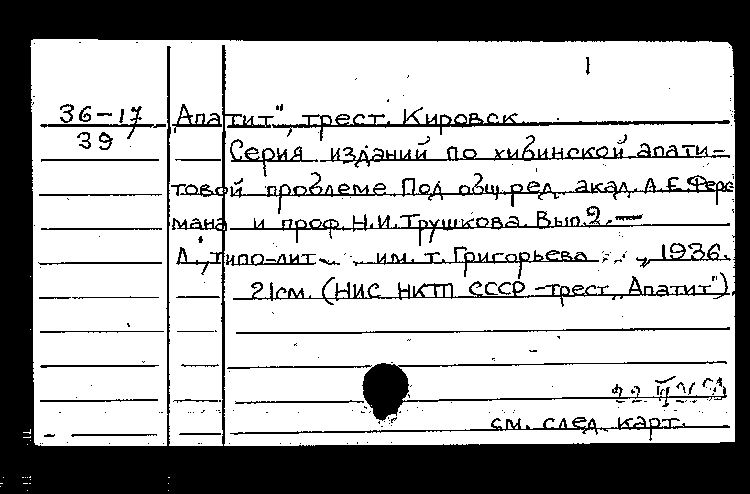 1
36-17 Апатит", трест. Кировск
39
Серия изданий по хибинской апати=
товой проблеме. Под общ. ред. акад. А.Е. Ферс
мана и проф. Н.И. Трушкова. Вып. 2. —
Л., типо-лит. им. т. Григорьева, 1936.
21см. (НИС НКТП СССР - трест "Апатит").
см. след. карт.